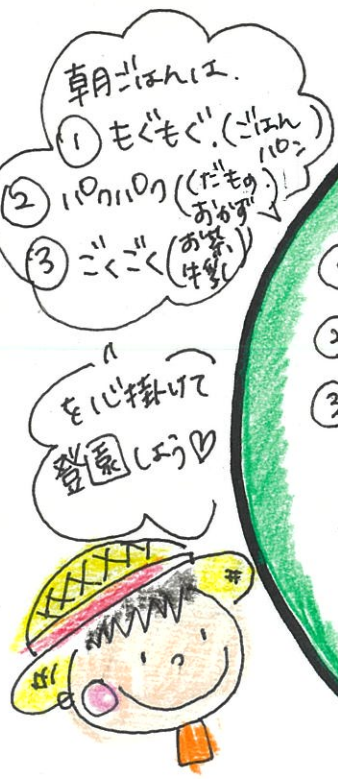 朝ごはんは、
① もぐもぐ、(ごはん
パン)
② パクパク(くだもの、
おかず)
③ ごくごく(お茶
牛乳)
を心掛けて
登園しよう♡
①
②
③